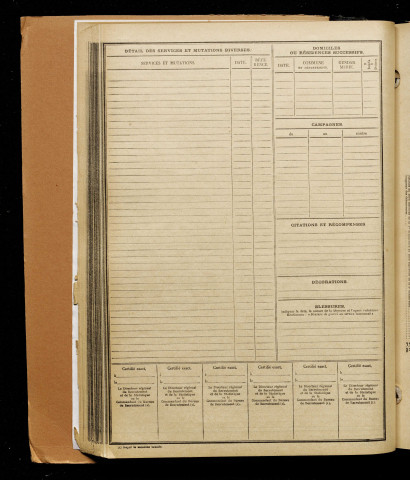 DÉTAIL DES SERVICES ET MUTATIONS DIVERSES.
SERVICES ET MUTATIONS. DATE.
DOMICILES
OU RÉSIDENCES SUCCESSIFS.
DATE. COMMUNE
CAMPAGNES
du au
CITATIONS ET RÉCOMPENSES
DÉCORATIONS
BLESSURES.
Certifié exact, Certifié exact, Certifié exact, Certifié exact, Certifié exact, Certifié exact,
A A A A A A
le le le le le le
Le Directeur régional Le Directeur régional Le Directeur régional Le Directeur régional Le Directeur régional Le Directeur régional
du Recrutement du Recrutement du Recrutement du Recrutement du Recrutement du Recrutement
et de la Statistique et de la Statistique et de la Statistique et de la Statistique et de la Statistique et de la Statistique
ou le ou le ou le ou le ou le ou le
Commandant du Bureau Commandant du Bureau Commandant du Bureau Commandant du Bureau Commandant du Bureau Commandant du Bureau
de Recrutement (1), de Recrutement (1), de Recrutement (1), de Recrutement (1), de Recrutement (1), de Recrutement (1),